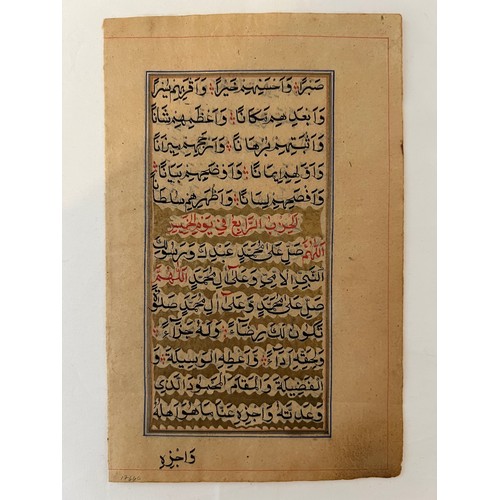 صَبْرًا وَاَحْسَنِهِمْ خَيْرًا وَاَقْرَبِهِمْ يُسْرًا
وَاَبْعَدِهِمْ مَكَانًا وَاَعْظَمِهِمْ شَانًا
وَاَثْبَتِهِمْ بُرْهَانًا وَاَرْجَحِهِمْ مِيزَانًا
وَاَوَّلِهِمْ اِيمَانًا وَاَوْضَحِهِمْ بَيَانًا
وَاَفْصَحِهِمْ لِسَانًا وَاَظْهَرِهِمْ سُلْطَانًا
الحزب الرابع في يوم الخميس
اَللّٰهُمَّ صَلِّ عَلٰى مُحَمَّدٍ عَبْدِكَ وَرَسُولِكَ
النَّبِيِّ الْاُمِّيِّ وَعَلٰى اٰلِ مُحَمَّدٍ اَللّٰهُمَّ
صَلِّ عَلٰى مُحَمَّدٍ وَعَلٰى اٰلِ مُحَمَّدٍ صَلٰوةً
تَكُونُ لَكَ رِضَاءً وَلَهُ جَزَاءً
وَلِحَقِّهِ اَدَاءً وَاَعْطِهِ الْوَسِيلَةَ وَ
الْفَضِيلَةَ وَالْمَقَامَ الْمَحْمُودَ الَّذِي
وَعَدْتَهُ وَاجْزِهِ عَنَّا مَا هُوَ اَهْلُهُ
وَاجْزِهِ